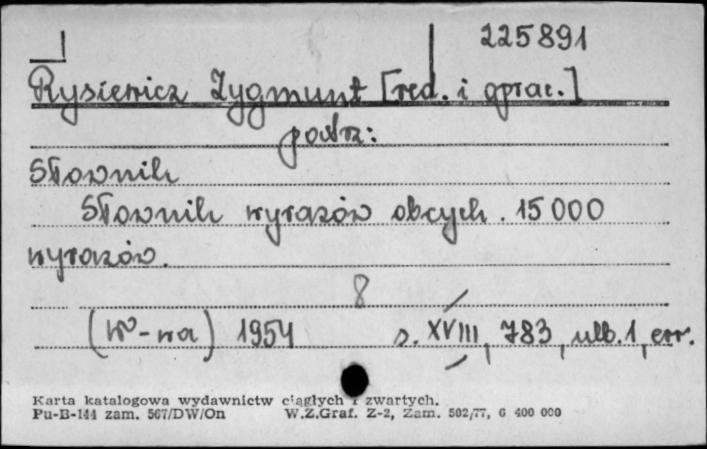 225891
Rysiewicz Zygmunt [red. i oprac.]
patrz:
Słownik
Słownik wyrazów obcych. 15 000
wyrazów.
8
(W-wa) 1954 s. XVIII, 783, ulb. 1, err.
Karta katalogowa wydawnictw ciągłych i zwartych.
Pu-B-144 zam. 567/DW/On W.Z.Graf. Z-2, Zam. 502/77, 6 400 000